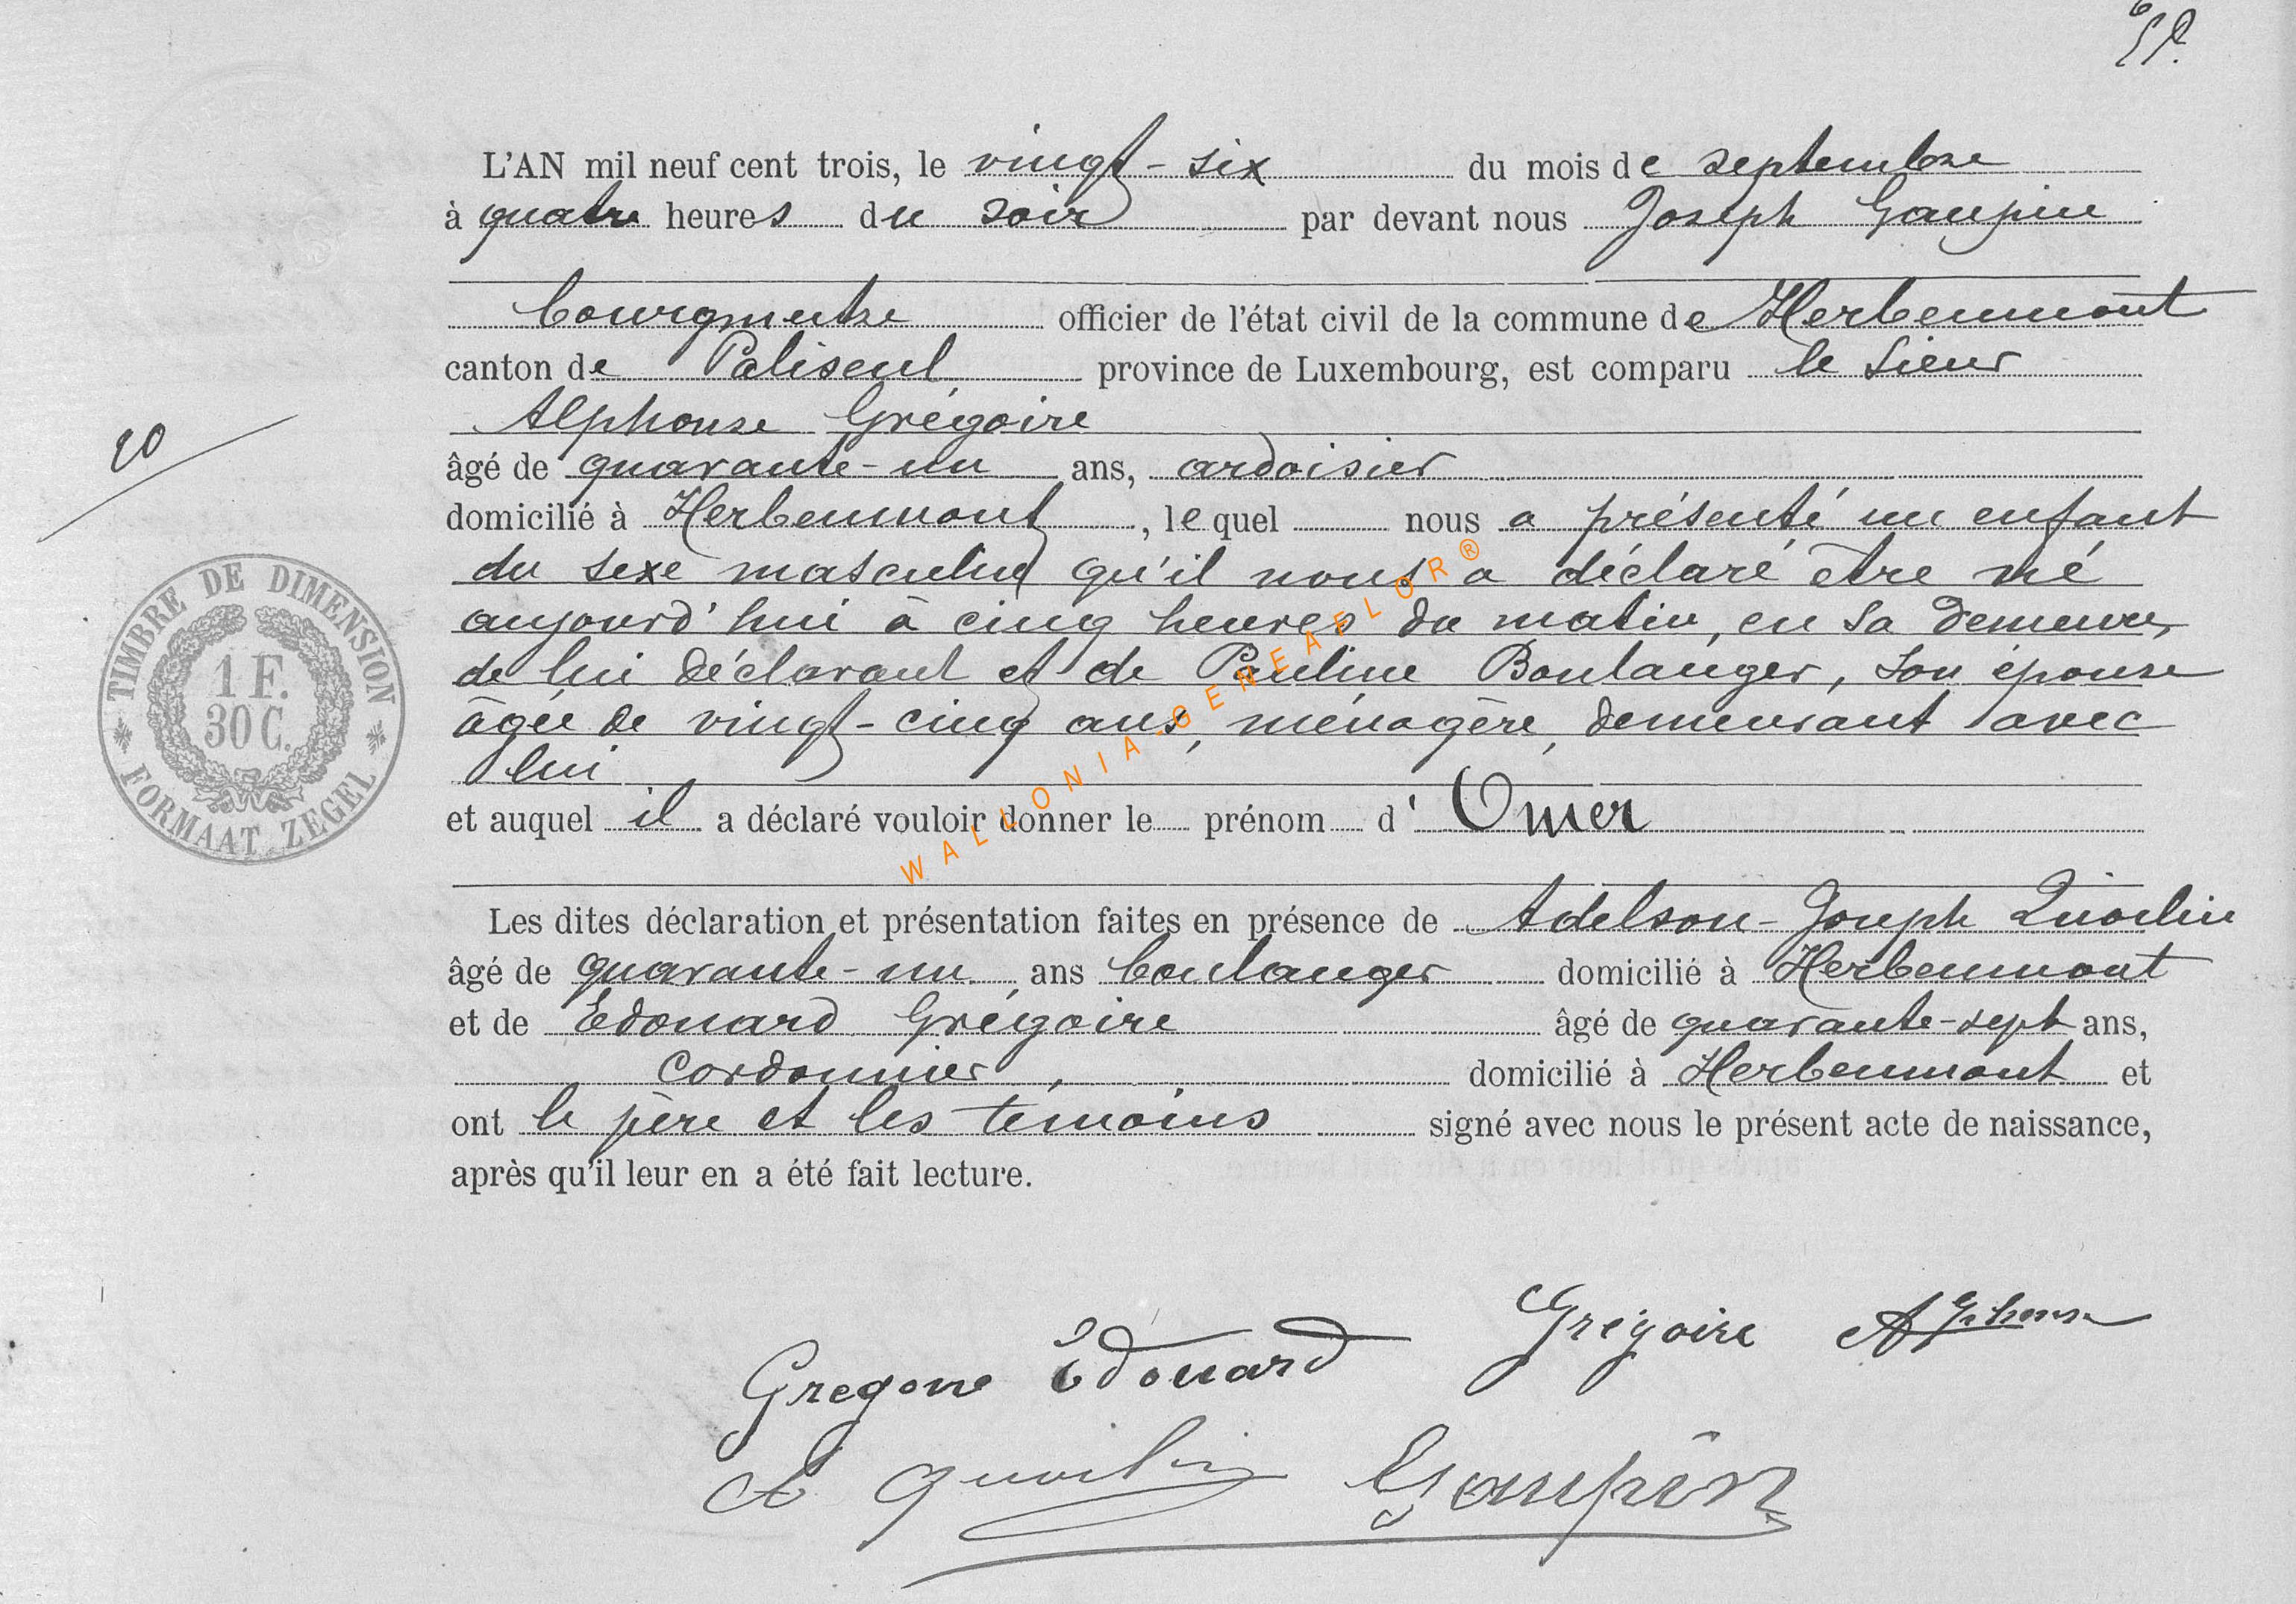 L'AN mil neuf cent trois, le vingt-six du mois de septembre
à quatre heures du soir par devant nous Joseph Gaupin
bourgmestre officier de l'état civil de la commune de Herbeumont
canton de Paliseul province de Luxembourg, est comparu le sieur
Alphonse Grégoire
âgé de quarante-un ans, ardoisier
domicilié à Herbeumont, lequel nous a présenté un enfant
du sexe masculin qu'il nous a déclaré être né
aujourd'hui à cinq heures du matin, en sa demeure,
de lui déclarant et de Pauline Boulanger, son épouse
âgée de vingt-cinq ans, ménagère, demeurant avec
lui
et auquel il a déclaré vouloir donner le prénom d'Omer
Les dites déclaration et présentation faites en présence de Adelson-Joseph Quoilin
âgé de quarante-un ans boulanger domicilié à Herbeumont
et de Edouard Grégoire âgé de quarante-sept ans,
cordonnier, domicilié à Herbeumont et
ont le père et les témoins signé avec nous le présent acte de naissance,
après qu'il leur en a été fait lecture.
20
TIMBRE DE DIMENSION
1 F.
30 C.
FORMAAT ZEGEL
WALLONIA-GENEAFLOR®
Grégoire Alphonse
Gregoire Edouard
A Quoilin Gaupin